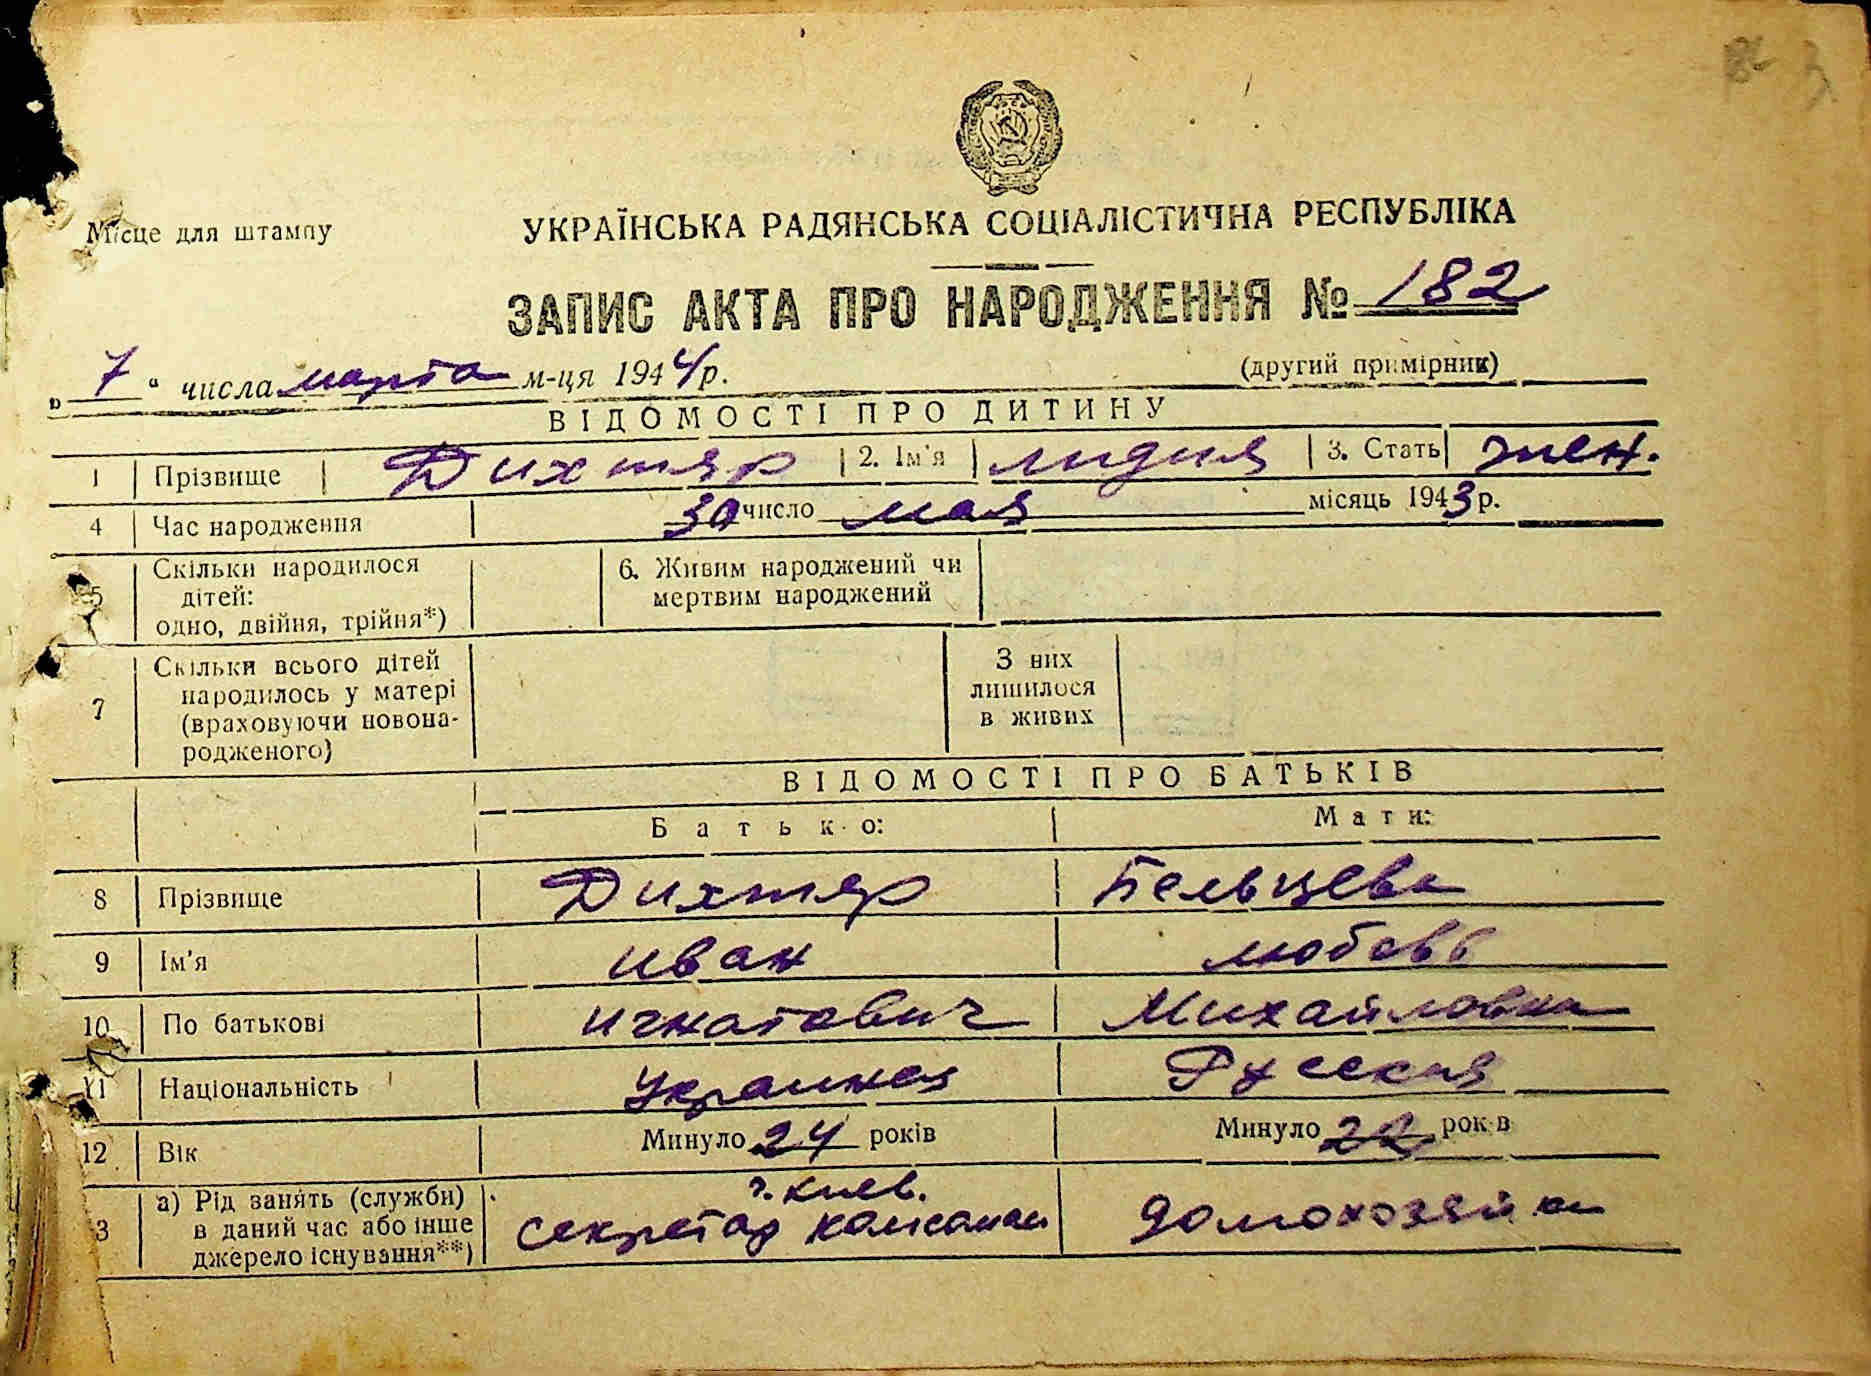 Місце для штампу
УКРАЇНСЬКА РАДЯНСЬКА СОЦІАЛІСТИЧНА РЕСПУБЛІКА
ЗАПИС АКТА ПРО НАРОДЖЕННЯ № 182
(другий примірник)
„7“ числа марта м-ця 1944 р.
ВІДОМОСТІ ПРО ДИТИНУ
1 Прізвище Дихтяр 2. Ім'я Лидия 3. Стать жен.
4 Час народження 30 число мая місяць 1943 р.
5 Скільки народилося
дітей:
одно, двійня, трійня*)
6. Живим народжений чи
мертвим народжений
7 Скільки всього дітей
народилось у матері
(враховуючи новона-
родженого)
З них
лишилося
в живих
ВІДОМОСТІ ПРО БАТЬКІВ
Батько: Мати:
8 Прізвище Дихтяр Бельцева
9 Ім'я Иван Любовь
10 По батькові Игнатович Михайловна
11 Національність Украинец Русская
12 Вік Минуло 24 років Минуло 22 років
3 а) Рід занять (служби)
в даний час або інше
джерело існування**)
г. Киев.
секретар
домохозяйка